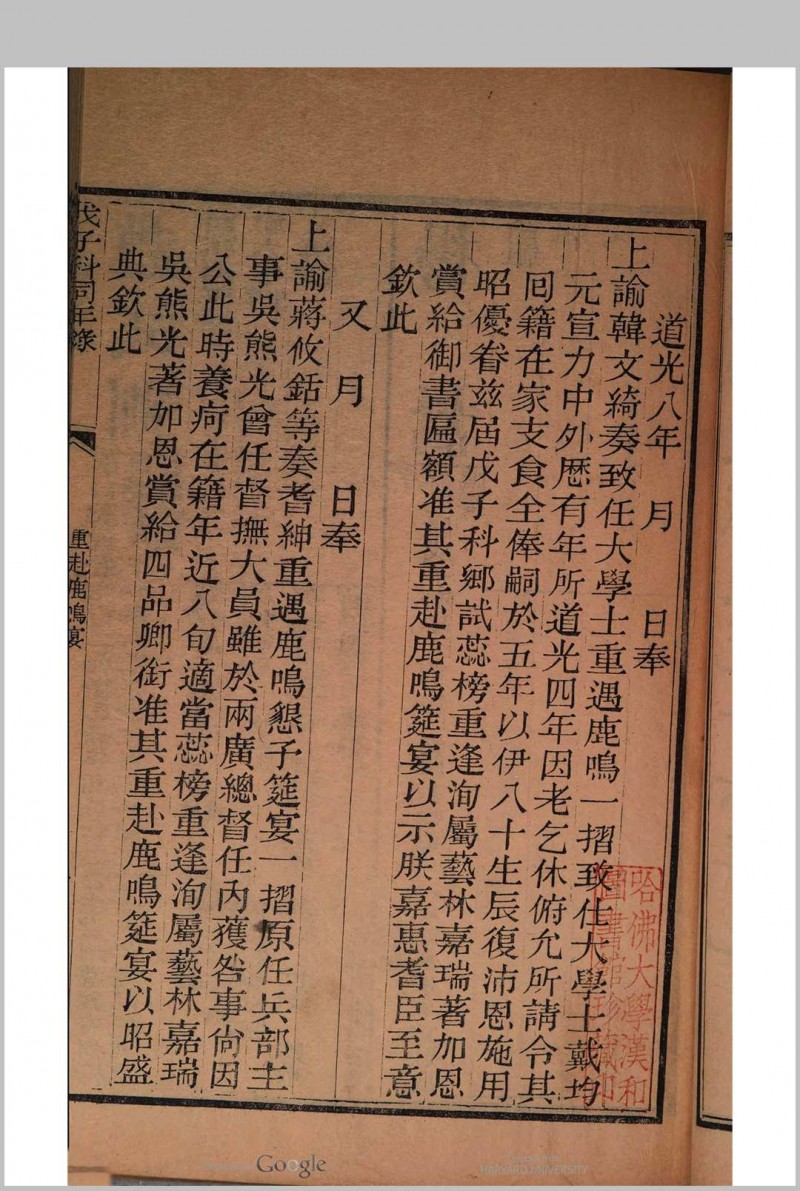 道光八年　月　日奉
上諭韓文綺奏致任大學士重遇鹿鳴一摺致仕大學士戴均
元宣力中外歷有年所道光四年因老乞休俯允所請令其
囘籍在家支食全俸嗣於五年以伊八十生辰復沛恩施用
昭優眷茲屆戊子科鄉試蕊榜重逢洵屬藝林嘉瑞著加恩
賞給御書匾額准其重赴鹿鳴筵宴以示朕嘉惠耆臣至意
欽此
又　月　日奉
上諭蔣攸銛等奏耆紳重遇鹿鳴懇予筵宴一摺原任兵部主
事吳熊光曾任督撫大員雖於兩廣總督任內獲咎事尙因
公此時養疴在籍年近八旬適當蕊榜重逢洵屬藝林嘉瑞
吳熊光著加恩賞給四品卿銜准其重赴鹿鳴筵宴以昭盛
典欽此
戊子科同年錄
重赴鹿鳴宴
哈佛大學漢和
圖書館珍藏印
Google
HARVARD UNIVERSITY